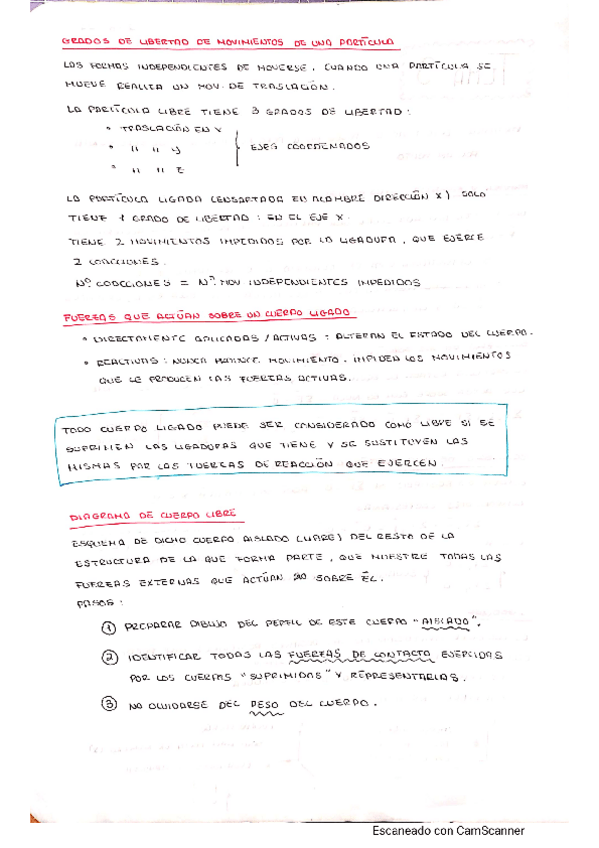 GRADOS DE LIBERTAD DE MOVIMIENTOS DE UNA PARTÍCULA
LAS FORMAS INDEPENDIENTES DE MOVERSE. CUANDO UNA PARTÍCULA SE
MUEVE REALIZA UN MOV. DE TRASLACIÓN.
LA PARTÍCULA LIBRE TIENE 3 GRADOS DE LIBERTAD:
• TRASLACIÓN EN X
• " " y
EJES COORDENADOS
• " " z
LA PARTÍCULA LIGADA (ENSARTADA EN ALAMBRE DIRECCIÓN X) SOLO
TIENE 1 GRADO DE LIBERTAD: EN EL EJE X.
TIENE 2 MOVIMIENTOS IMPEDIDOS POR LA LIGADURA, QUE EJERCE
2 COACCIONES.
Nº COACCIONES = Nº MOV INDEPENDIENTES IMPEDIDOS
FUERZAS QUE ACTÚAN SOBRE UN CUERPO LIGADO
• DIRECTAMENTE APLICADAS / ACTIVAS: ALTERAN EL ESTADO DEL CUERPO.
• REACTIVAS: NUNCA MOVIMIENTO. IMPIDEN LOS MOVIMIENTOS
QUE LE PRODUCEN LAS FUERZAS ACTIVAS.
TODO CUERPO LIGADO PUEDE SER CONSIDERADO COMO LIBRE SI SE
SUPRIMEN LAS LIGADURAS QUE TIENE Y SE SUSTITUYEN LAS
MISMAS POR LAS FUERZAS DE REACCIÓN QUE EJERCEN.
DIAGRAMA DE CUERPO LIBRE
ESQUEMA DE DICHO CUERPO AISLADO (LIBRE) DEL RESTO DE LA
ESTRUCTURA DE LA QUE FORMA PARTE, QUE MUESTRE TODAS LAS
FUERZAS EXTERNAS QUE ACTÚAN SOBRE ÉL.
PASOS:
① PREPARAR DIBUJO DEL PERFIL DE ESTE CUERPO "AISLADO".
② IDENTIFICAR TODAS LAS FUERZAS DE CONTACTO EJERCIDAS
POR LOS CUERPOS "SUPRIMIDOS" Y REPRESENTARLAS.
③ NO OLVIDARSE DEL PESO DEL CUERPO.
Escaneado con CamScanner